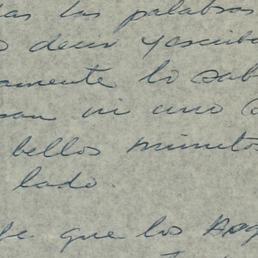 las palabras
decir y escribir
amente lo sab
ni uno
bellos minutos
lado.
que los